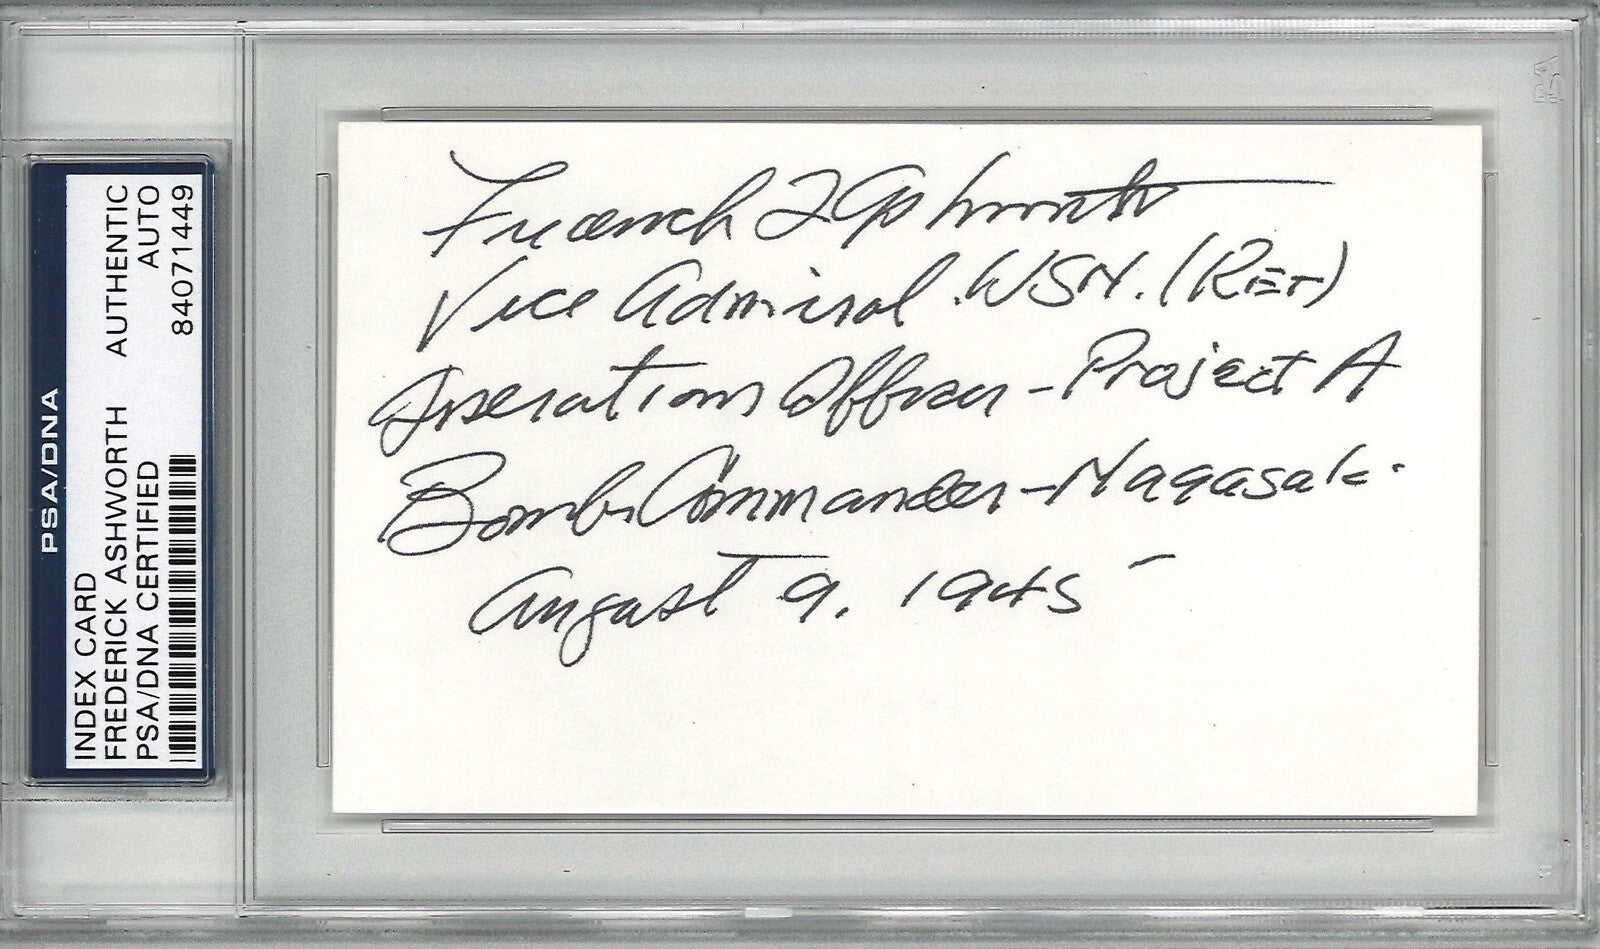 PSA/DNA
INDEX CARD
FREDERICK ASHWORTH AUTHENTIC
PSA/DNA CERTIFIED AUTO
84071449
Frederick L Ashworth
Vice Admiral. USN. (RET)
Operations Officer - Project A
Bomb Commander - Nagasaki
August 9, 1945
PSA